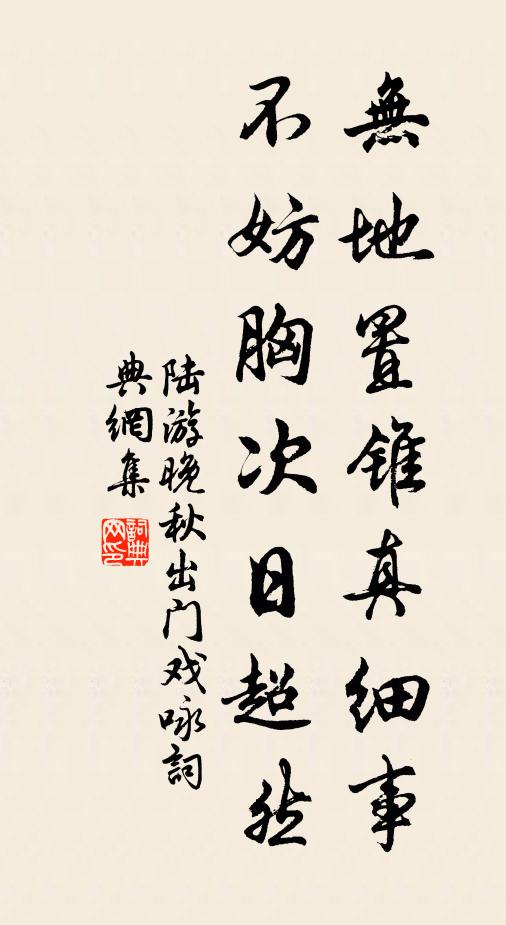 無地置錐真細事
不妨胸次日超然
陆游晚秋出门戏咏詞
典網集
詞典网印